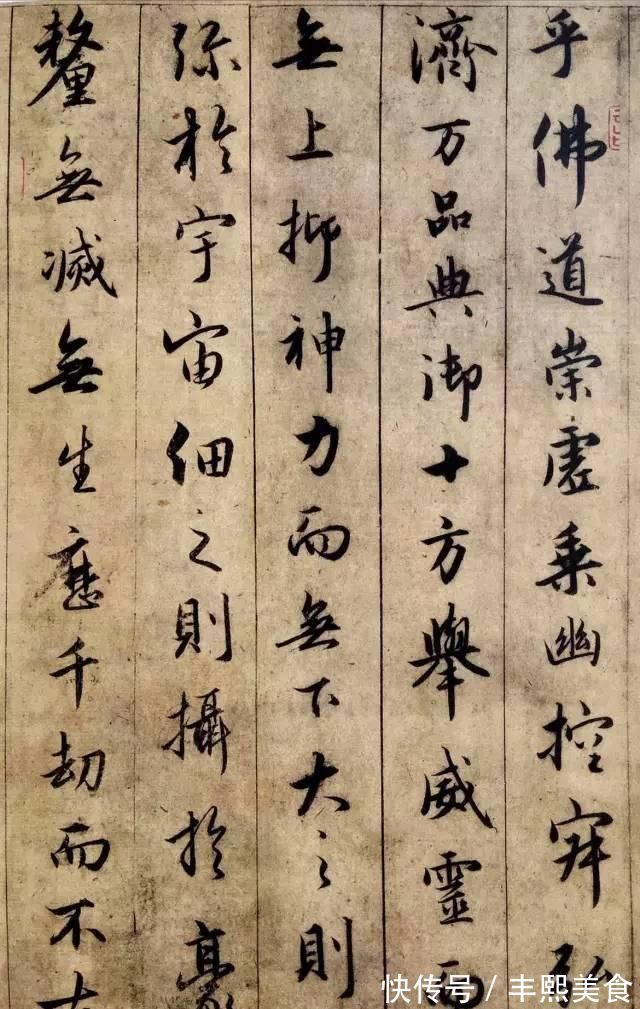 乎佛道崇虛乘幽控寂弘
濟万品典御十方舉威靈而
無上抑神力而無下大之則
弥於宇宙細之則攝於毫
釐無滅無生應千劫而不古
快传号 / 丰熙美食